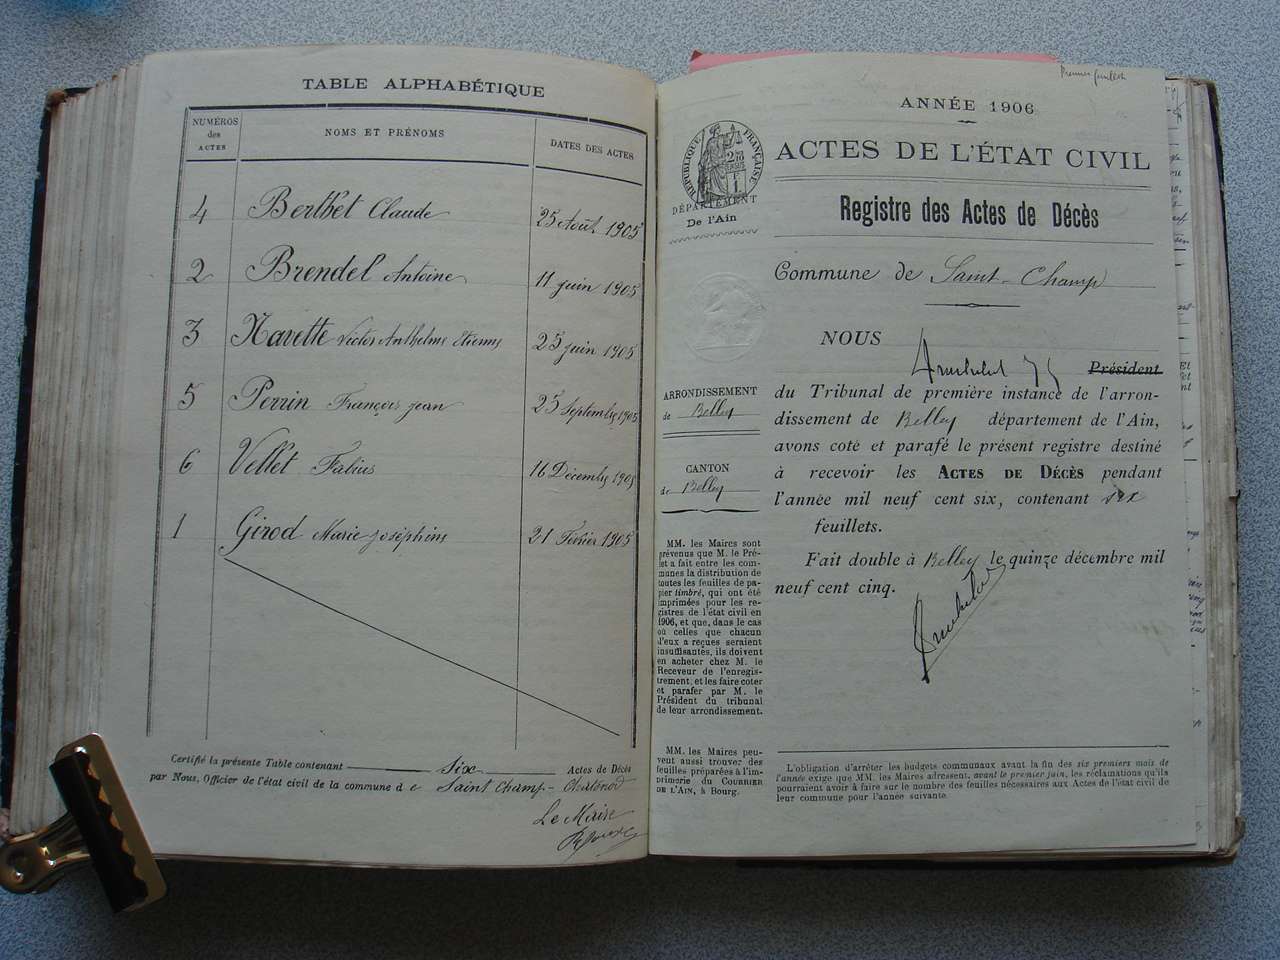 TABLE ALPHABÉTIQUE
NUMÉROS des ACTES
NOMS ET PRÉNOMS
DATES DES ACTES
4 Berthet Claude 25 Août 1905
2 Brendel Antoine 11 juin 1905
3 Navette Victor Anthelme Etienne 25 juin 1905
5 Perrin François jean 25 Septembre 1905
6 Vellet 16 Décembre 1905
1 Girod Marie joséphine 21 Février 1905
Certifié la présente Table contenant Six Actes de Décès
par Nous, Officier de l'état civil de la commune de Saint Champ - Chatonod
Le Maire
Premier feuillet
ANNÉE 1906
RÉPUBLIQUE FRANÇAISE
ACTES DE L'ÉTAT CIVIL
DÉPARTEMENT
De l'Ain
Registre des Actes de Décès
Commune de Saint-Champ
NOUS
Président
ARRONDISSEMENT
de Belley
CANTON
de Belley
du Tribunal de première instance de l'arron-
dissement de Belley département de l'Ain,
avons coté et parafé le présent registre destiné
à recevoir les ACTES DE DÉCÈS pendant
l'année mil neuf cent six, contenant six
feuillets.
Fait double à Belley le quinze décembre mil
neuf cent cinq.
MM. les Maires sont
prévenus que M. le Pré-
fet a fait entre les com-
munes la distribution de
toutes les feuilles de pa-
pier timbré, qui ont été
imprimées pour les re-
gistres de l'état civil en
1906, et que, dans le cas
où celles que chacun
d'eux a reçues seraient
insuffisantes, ils doivent
en acheter chez M. le
Receveur de l'enregis-
trement, et les faire coter
et parafer par M. le
Président du tribunal
de leur arrondissement.
MM. les Maires peu-
vent aussi trouver des
feuilles préparées à l'im-
primerie du COURRIER
DE L'AIN, à Bourg.
L'obligation d'arrêter les budgets communaux avant la fin des six premiers mois de
l'année exige que MM. les Maires adressent, avant le premier juin, les réclamations qu'ils
pourraient avoir à faire sur le nombre des feuilles nécessaires aux Actes de l'état civil de
leur commune pour l'année suivante.